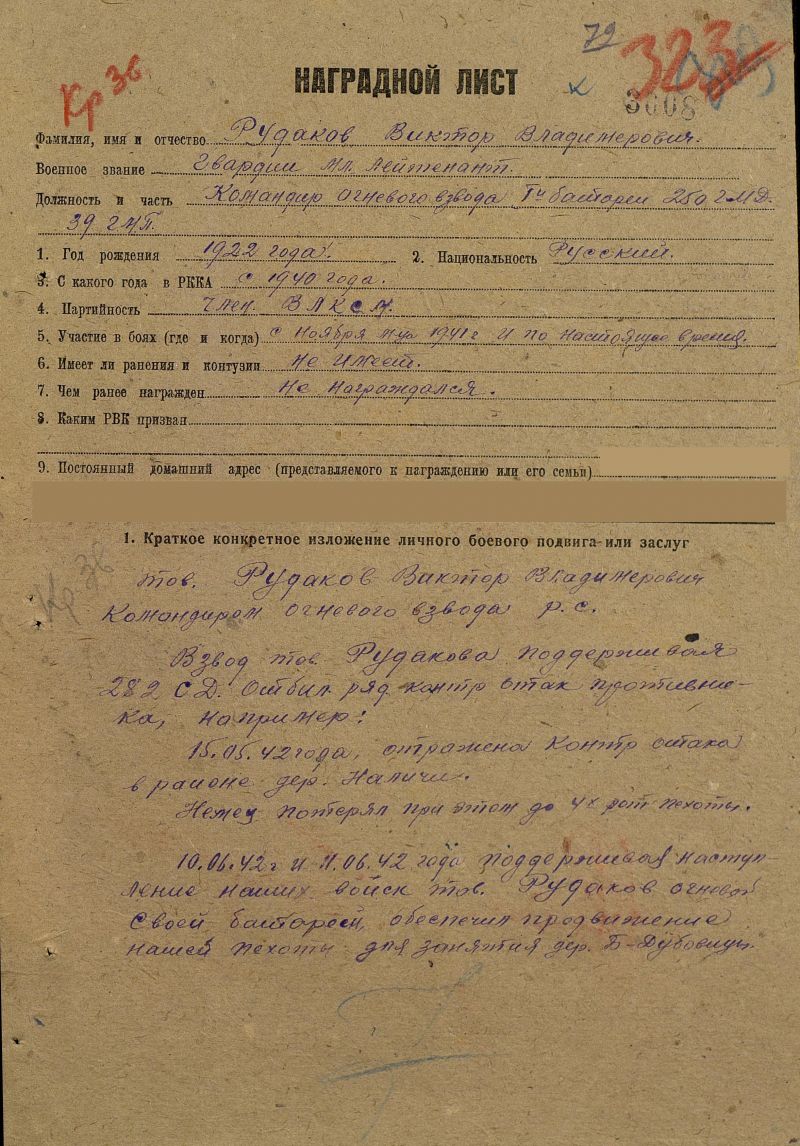 72
323
Кр Зв
НАГРАДНОЙ ЛИСТ
3008
Фамилия, имя и отчество Рудаков Виктор Владимерович.
Военное звание Гвардии мл. лейтенант.
Должность и часть Командир огневого взвода 1й батареи 250 ГМД.
39 ГМП.
1. Год рождения 1922 года. 2. Национальность Русский.
3. С какого года в РККА с 1940 года.
4. Партийность Член ВЛКСМ.
5. Участие в боях (где и когда) с Ноября м-ца 1941г и по настоящее время.
6. Имеет ли ранения и контузии не имеет.
7. Чем ранее награжден не награждался.
8. Каким РВК призван
9. Постоянный домашний адрес (представляемого к награждению или его семьи)
1. Краткое конкретное изложение личного боевого подвига или заслуг
Кр Зв
тов. Рудаков Виктор Владимерович
Командиром огневого взвода р.с.
Взвод тов. Рудакова поддерживая
282 СД. Отбил ряд контр атак противни-
ка, например:
15.05.42 года, отражена контр атака
в районе дер. Наличи.
Немец потерял при этом до 4х рот пехоты.
10.06.42г и 11.06.42 года поддерживая наступ-
ление наших войск тов. Рудаков огнем
своей батареи, обеспечил продвижение
нашей пехоты для занятия дер. Б-Дубовицы.